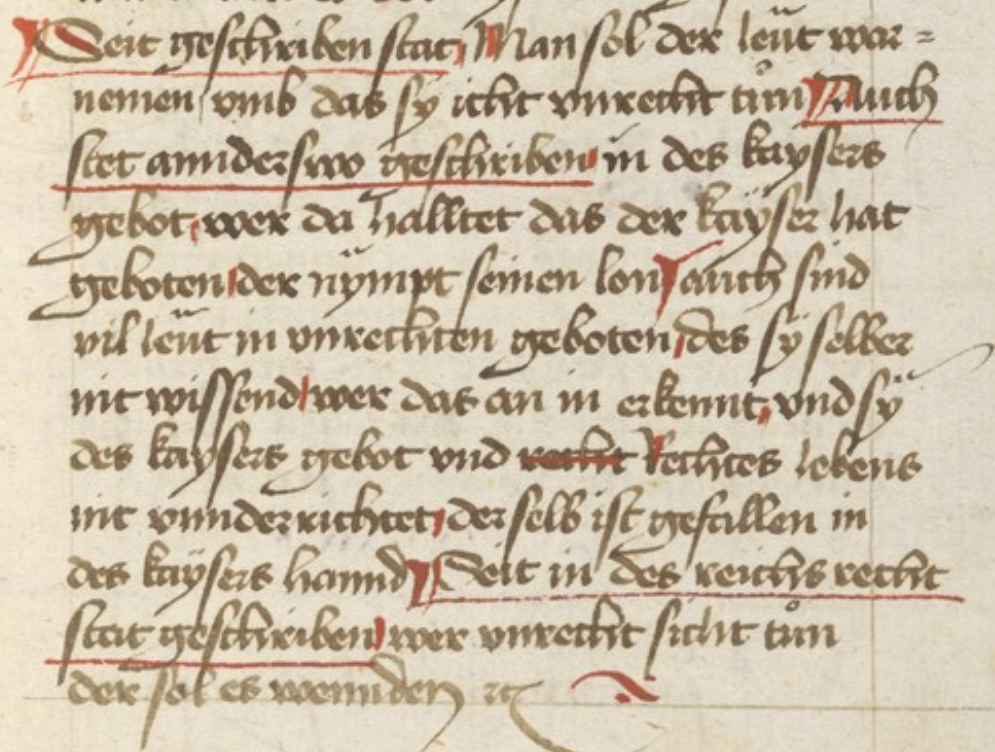 Seit geschriben stat Man sol der leüt war =
nemen vmb das sy icht vnrecht tůn Auch
stet annderswo geschriben in des kaysers
gebot wer da halltet das der kayser hat
geboten der nympt seinen lon auch sind
vil leüt in vnrechten geboten des sy selber
nit wissend wer das an in erkennt vnd sÿ
des kaysers gebot vnd recht Rechtes lebens
nit vnnderrichtet der selb ist gefallen in
des kaysers hannd Seit in des reichs recht
stat geschriben wer vnrecht sicht tůn
der sol es wennden ꝛc